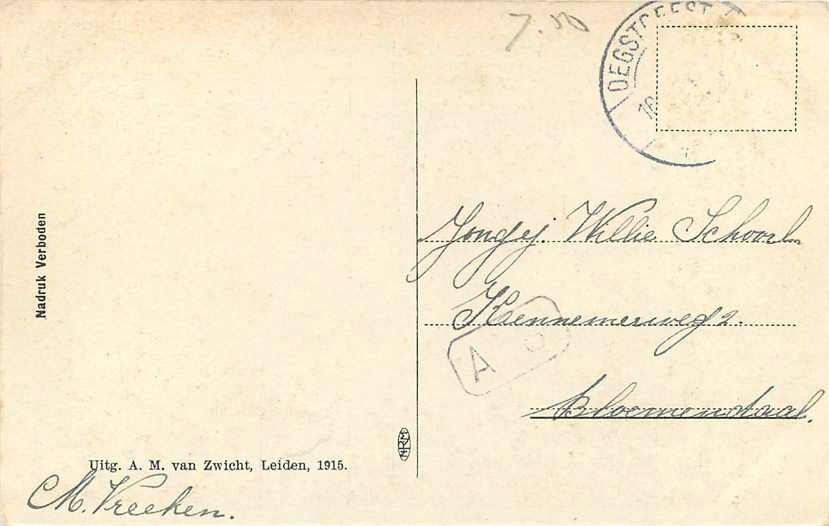 7.50
OEGSTGEEST
16
Jongej. Willie Schoorl.
Kennemerweg 2.
Bloemendaal.
A
Nadruk Verboden
Uitg. A. M. van Zwicht, Leiden, 1915.
M. Vreeken.